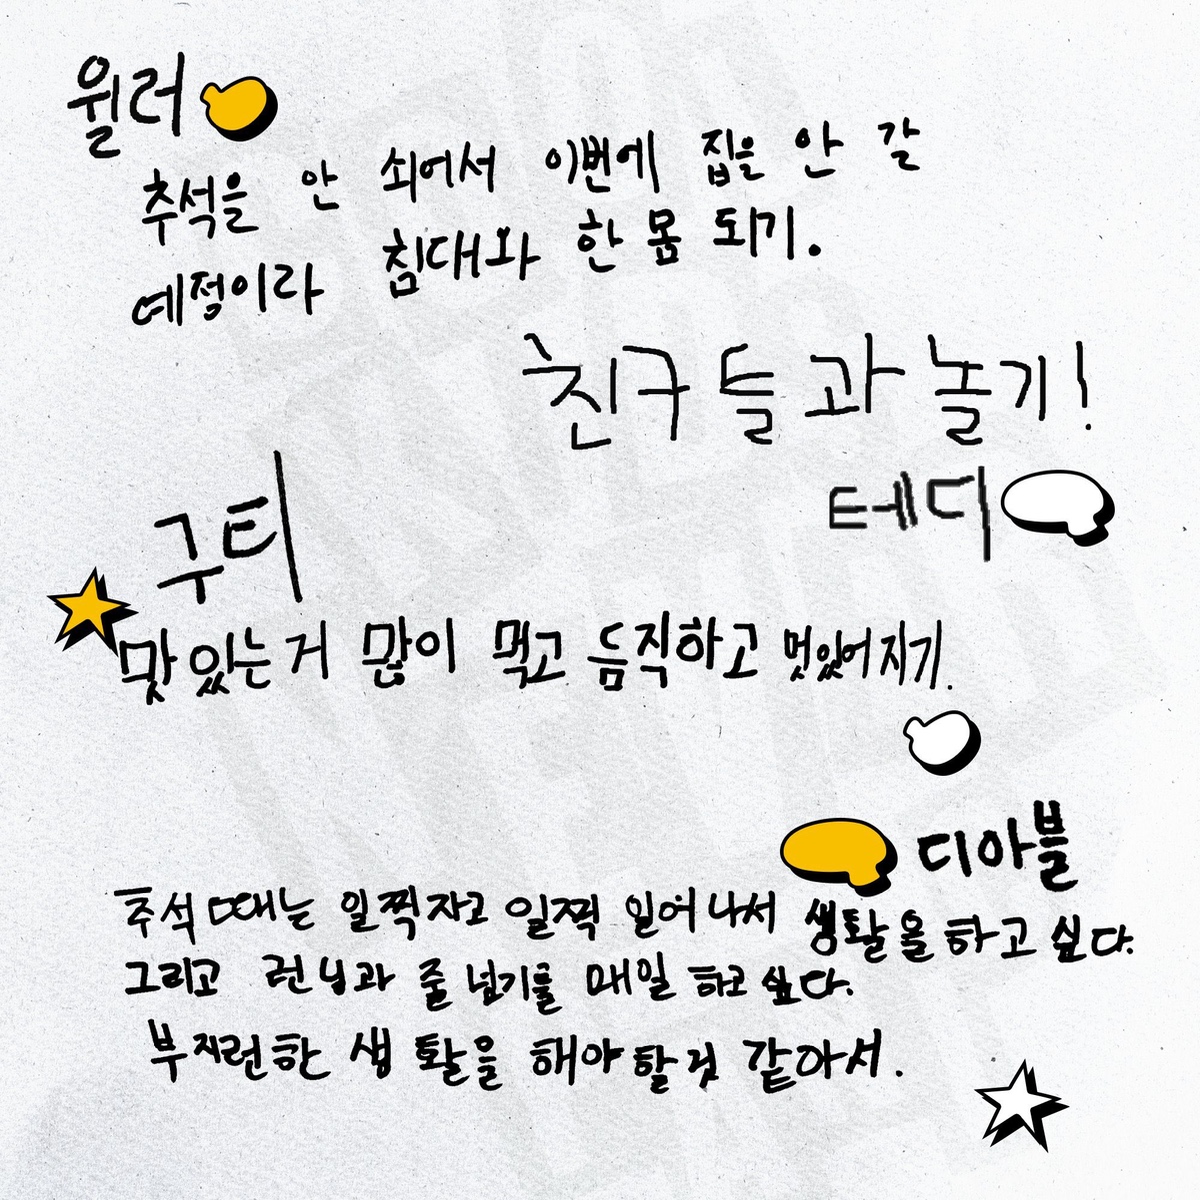 윌러
추석을 안 쇠어서 이번에 집을 안 갈
예정이라 침대와 한 몸 되기.
친구들과 놀기!
테디
구티
맛있는거 많이 먹고 듬직하고 멋있어지기.
디아블
추석때는 일찍자고 일찍 일어나서 생활을 하고 싶다.
그리고 런닝과 줄넘기를 매일 하고 싶다.
부지런한 생활을 해야할것 같아서.